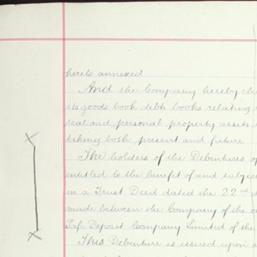 hereto annexed
And the Company hereby ch
its goods book debts books relating
real and personal property assets
taking both present and future
The holders of the Debentures of
entitled to the benefit of and subje
in a Trust Deed dated the 22nd
made between the Company of the o
Safe Deposit Company Limited of the
This Debenture is issued upon